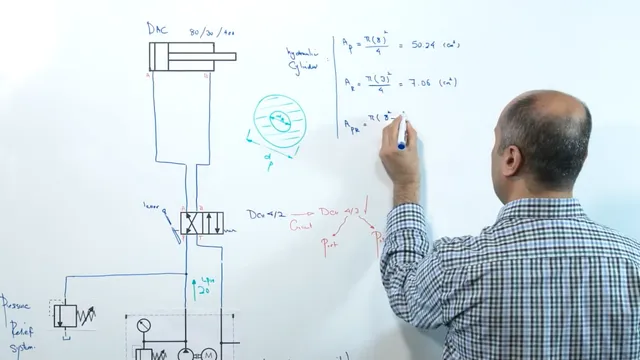 DAC 80/30/400
A B
hydraulic
Cylinder
Ap = π(8)²/4 = 50.24 (cm²)
π(3)²/4 = 7.06 (cm²)
π(8²
lever
A B
P T
DCV 4/2 → DCV 4/2
Circuit
Port
20
Pressure
Relief
System
M